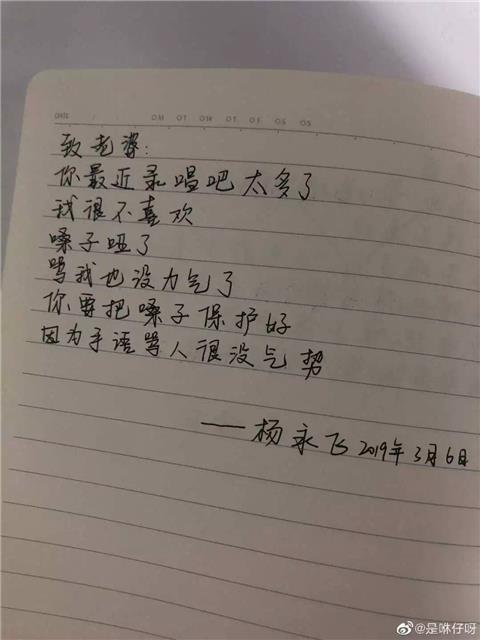 DATE
致老婆：
你最近录唱吧太多了
我很不喜欢
嗓子哑了
骂我也没力气了
你要把嗓子保护好
因为手语骂人很没气势
——杨永飞 2019年3月6日
@是咻仔呀